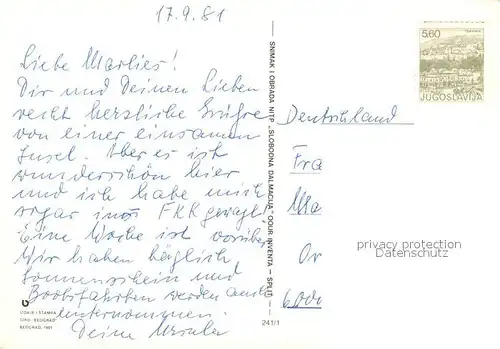 17.9.81
Liebe Marlies!
Dir und Deinen Lieben
recht herzliche Grüße
von einer einsamen
Insel. Aber es ist
wunderschön hier
und ich habe mich
sogar ins FKK gewagt!
Eine Woche ist vorüber
Wir haben täglich
Sonnenschein und
Bootsfahrten werden auch
unternommen.
Deine Ursula
SNIMAK I OBRADA NITP „SLOBODNA DALMACIJA” OOUR INVENTA – SPLIT
5.60
JUGOSLAVIJA
Deutschland
Fra
Ma
Or
privacy protection
Datenschutz
600
IZDAJE I ŠTAMPA
BEOGRAD, 1981
241/1